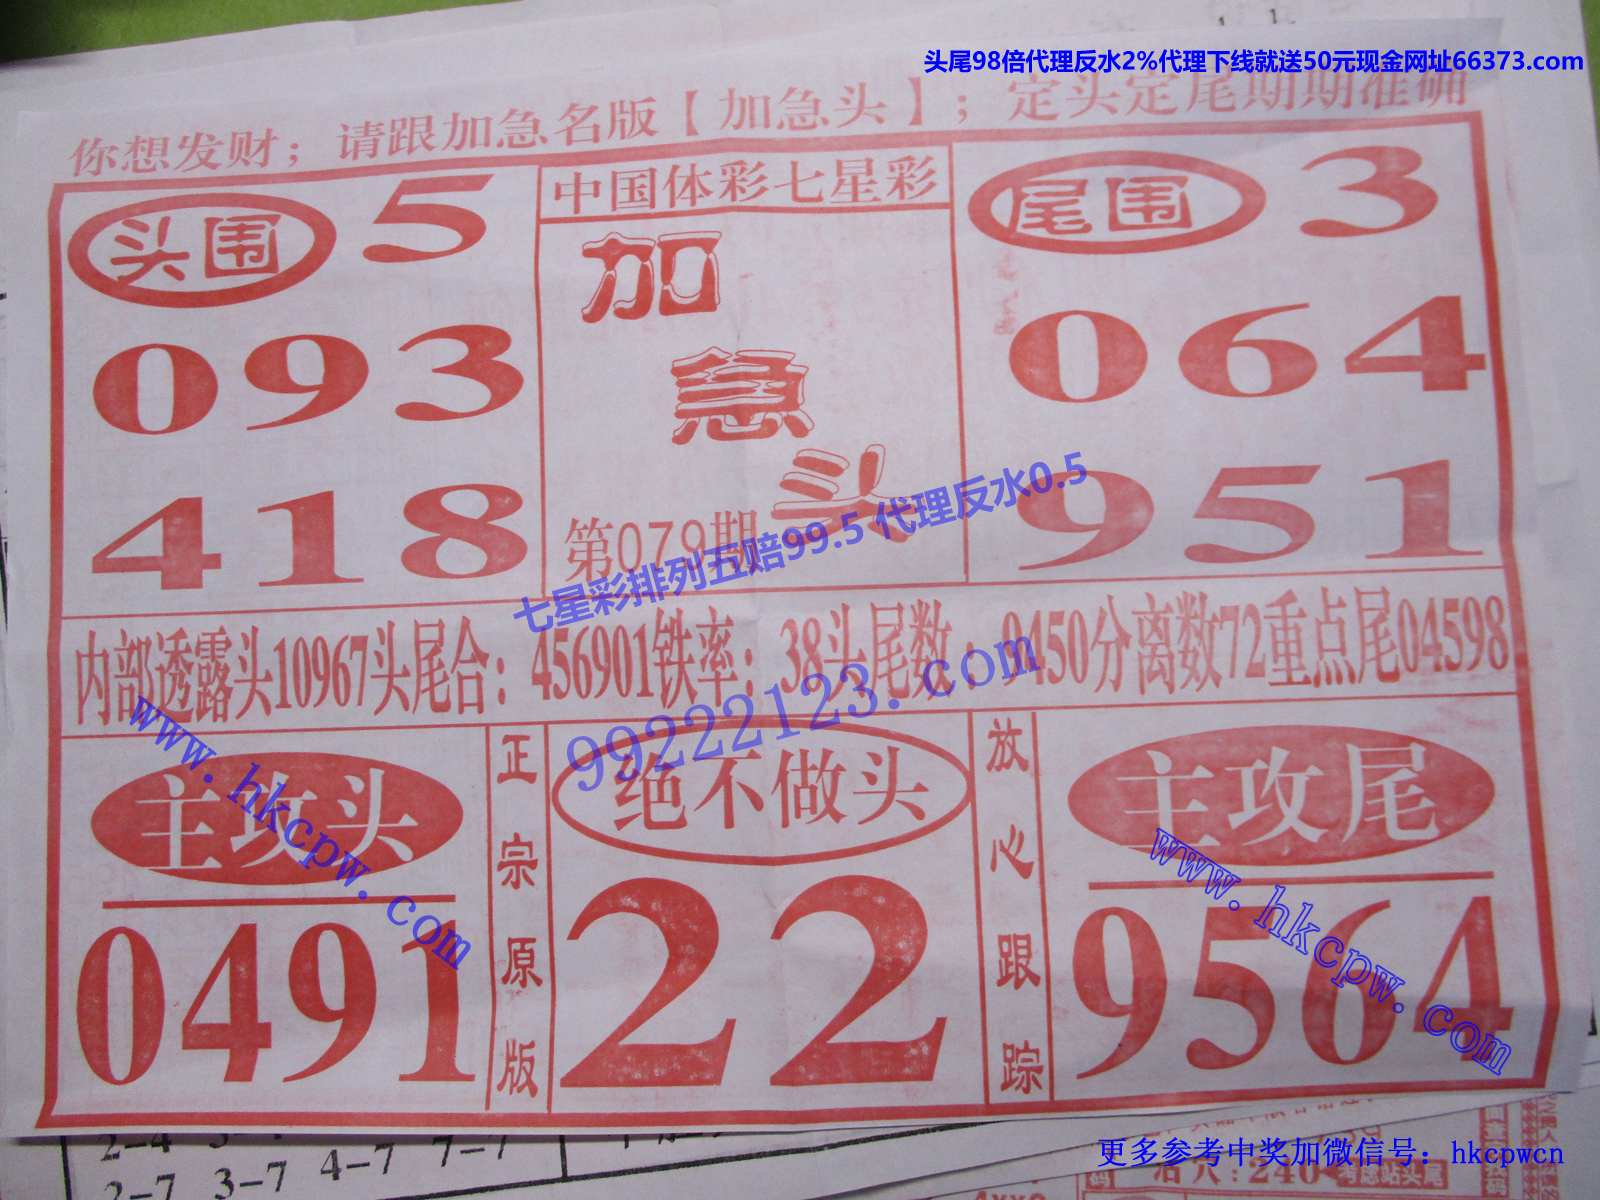 头尾98倍代理反水2%代理下线就送50元现金网址66373.com
你想发财；请跟加急名版【加急头】；定头定尾期期准确
头围 5
093
418
中国体彩七星彩
加急头
第079期
尾围 3
064
951
七星彩排列五赔99.5 代理反水0.5
内部透露头10967头尾合：456901铁率；38头尾数：0450分离数72重点尾04598
99222123.com
www.hkcpw.com
主攻头
0491
正宗原版
绝不做头
22
放心跟踪
主攻尾
9564
www.hkcpw.com
更多参考中奖加微信号：hkcpwcn
2-7 3-7 4-7 7-7